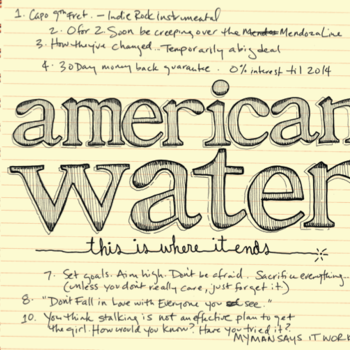 1. Capo 9th Fret. - Indie Rock Instrumental
2. 0 for 2. Soon be creeping over the Mendoza Line
3. How they've changed.. Temporarily a big deal
4. 30 Day money back guarantee. 0% interest til 2014
american
water
this is where it ends
7. Set goals. Aim high. Don't be afraid. Sacrifice everything
(unless you don't really care, just forget it)
8. "Don't Fall in Love with Everyone you see."
10. You think stalking is not an effective plan to get
the girl. How would you know? Have you tried it?
MY MAN SAYS IT WORK